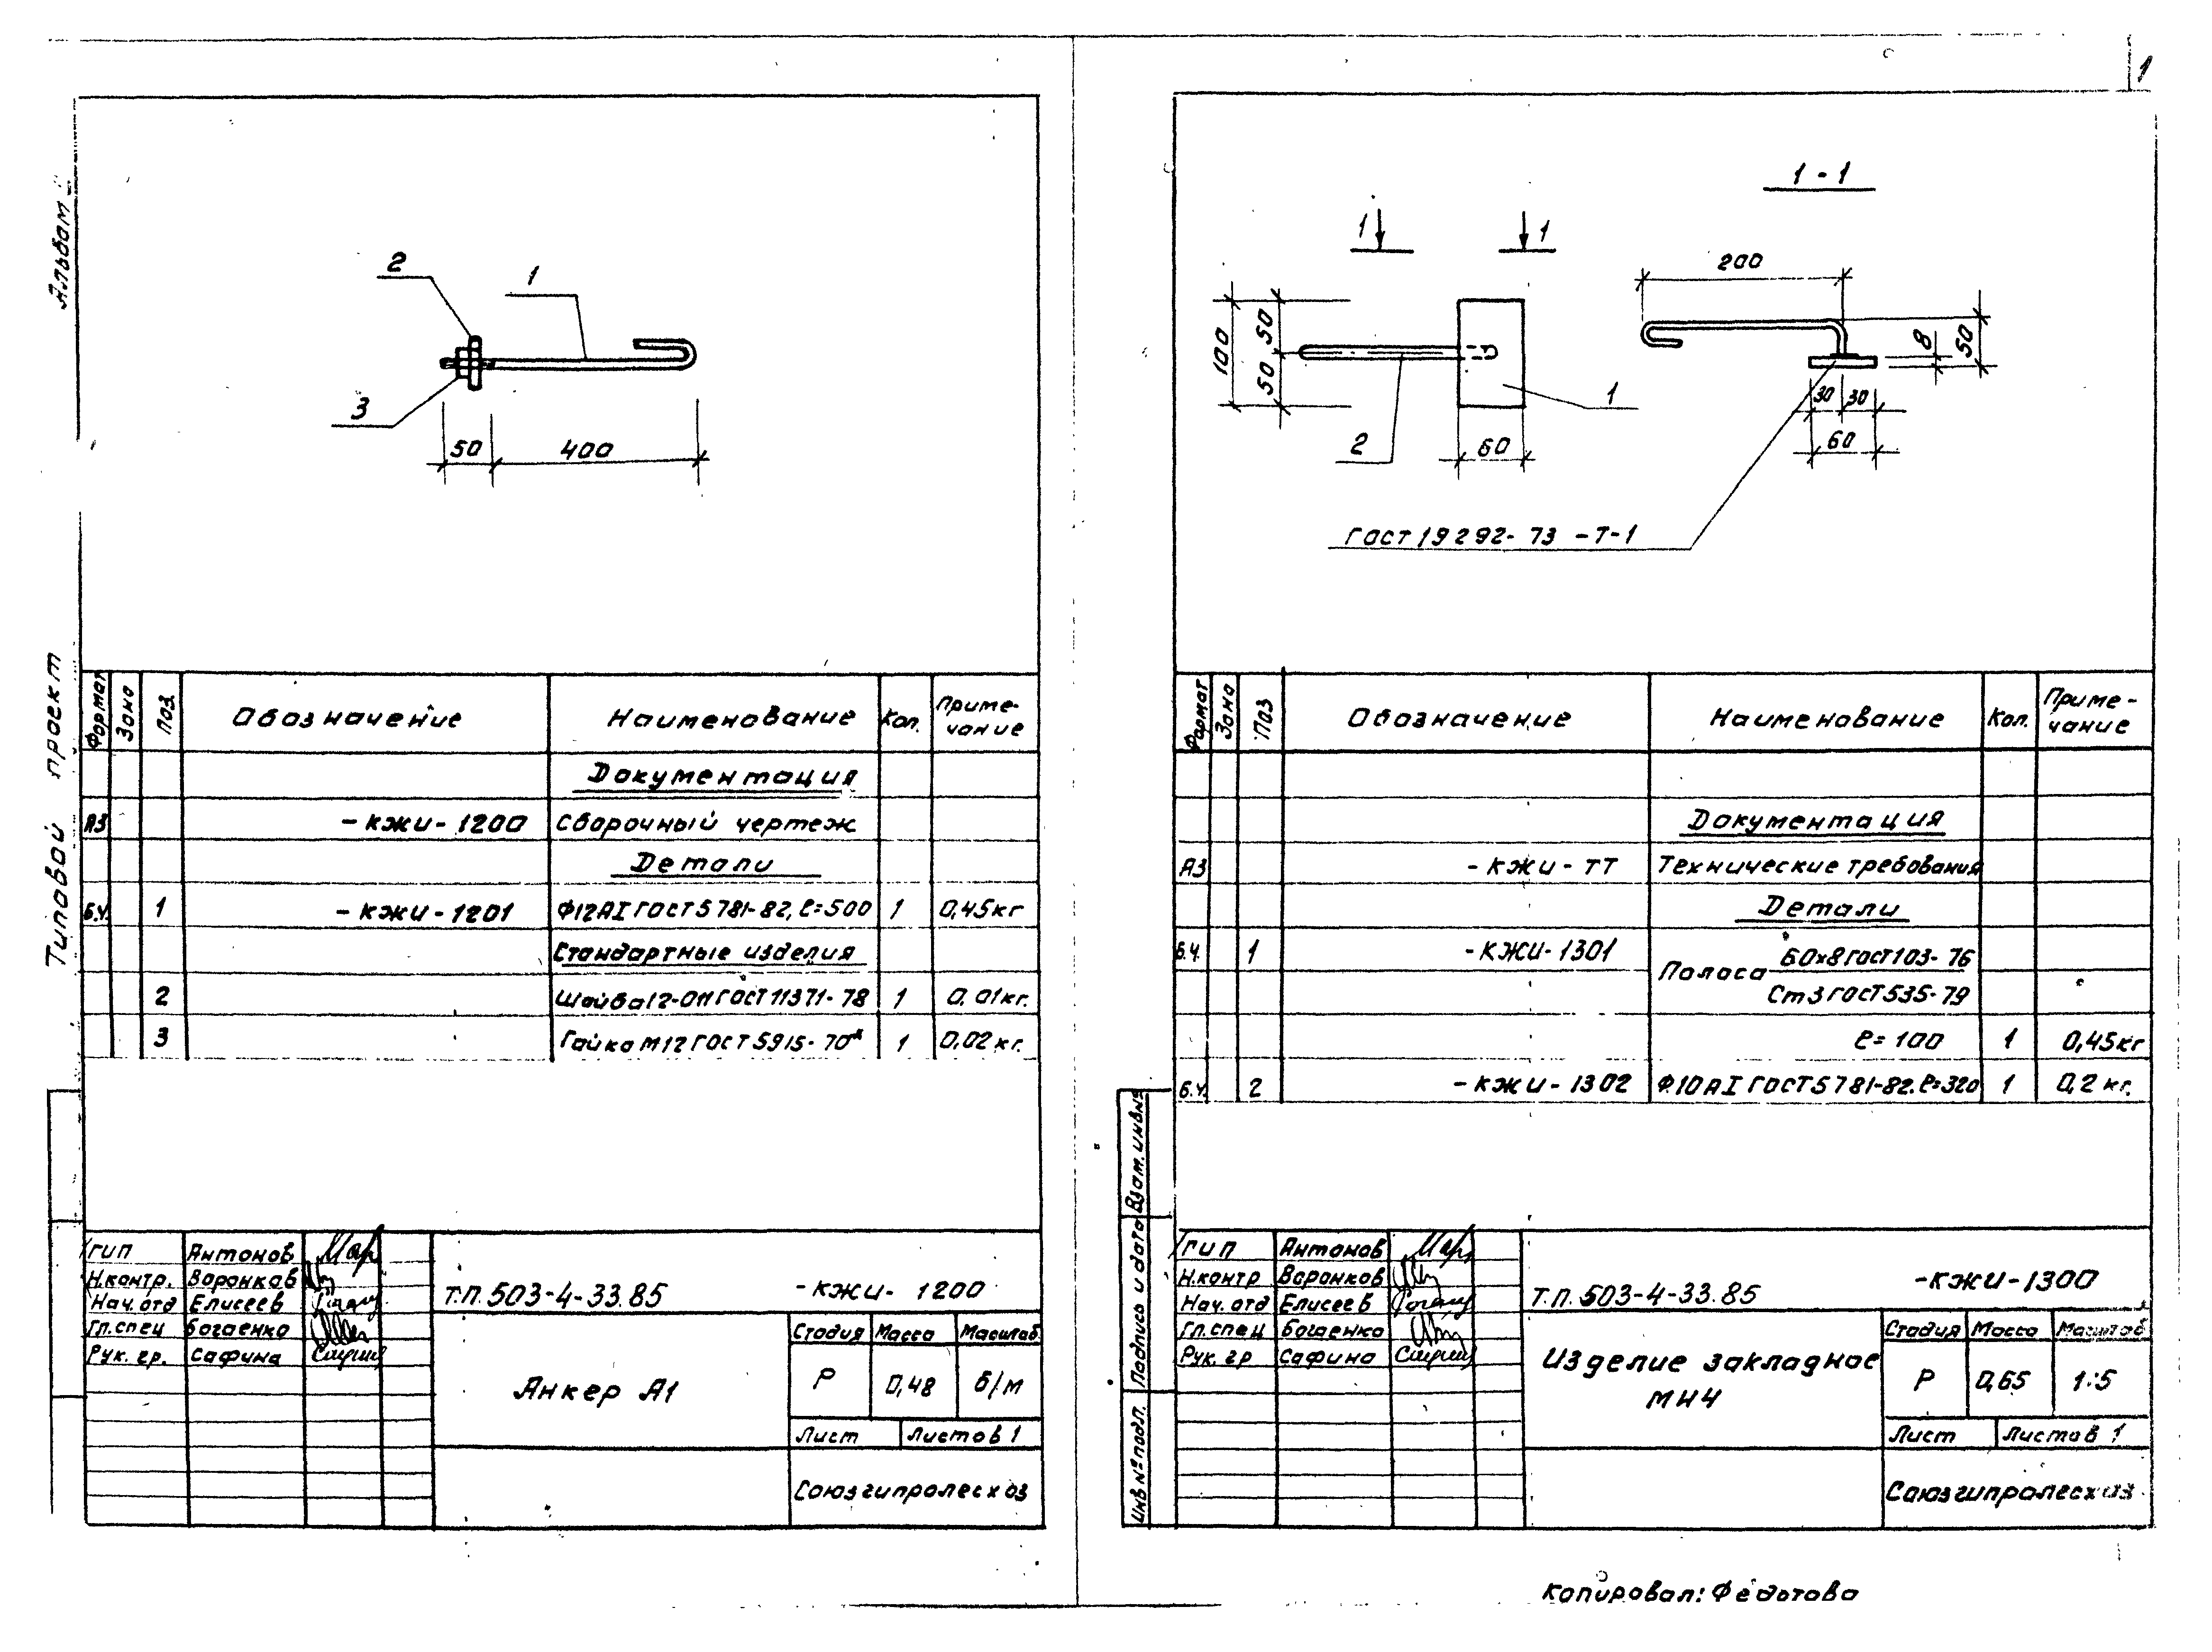 1
Альбом
Типовой проект
2
1
3
50
400
Формат
Зона
Поз.
Обозначение
Наименование
Кол.
Приме-
чание
Документация
А3
-КЖИ-1200
Сборочный чертеж
Детали
Б.Ч.
1
-КЖИ-1201
Ф12АI ГОСТ 5781-82, ℓ=500
1
0,45кг
Стандартные изделия
2
Шайба 12-011 ГОСТ 11371-78
1
0,01кг.
3
Гайка М12 ГОСТ 5915-70*
1
0,02кг.
ГИП
Антонов
Н.контр.
Воронков
Нач.отд
Елисеев
Гл.спец
Богаенко
Рук. гр.
Сафина
Т.П. 503-4-33.85
-КЖИ-1200
Анкер А1
Стадия
Масса
Масштаб
Р
0,48
б/м
Лист
Листов 1
Союзгипролесхоз
1-1
1
1
200
100
50
50
2
1
60
8
50
30
30
60
ГОСТ 19292-73-Т-1
Формат
Зона
Поз
Обозначение
Наименование
Кол.
Приме-
чание
Документация
А3
-КЖИ-ТТ
Технические требования
Детали
Б.Ч.
1
-КЖИ-1301
Полоса
60х8 ГОСТ 103-76
Ст3 ГОСТ 535-79
ℓ=100
1
0,45кг
Б.Ч.
2
-КЖИ-1302
Ф.10АI ГОСТ 5781-82. ℓ=320
1
0,2 кг.
Взам. инв№
Подпись и дата
Инв № подл.
ГИП
Антонов
Н.контр
Воронков
Нач. отд
Елисеев
Гл.спец
Богаенко
Рук. гр
Сафина
Т.П. 503-4-33.85
-КЖИ-1300
Изделие закладное
МН4
Стадия
Масса
Масштаб
Р
0,65
1:5
Лист
Листов 1
Союзгипролесхоз
Копировал: Федотова